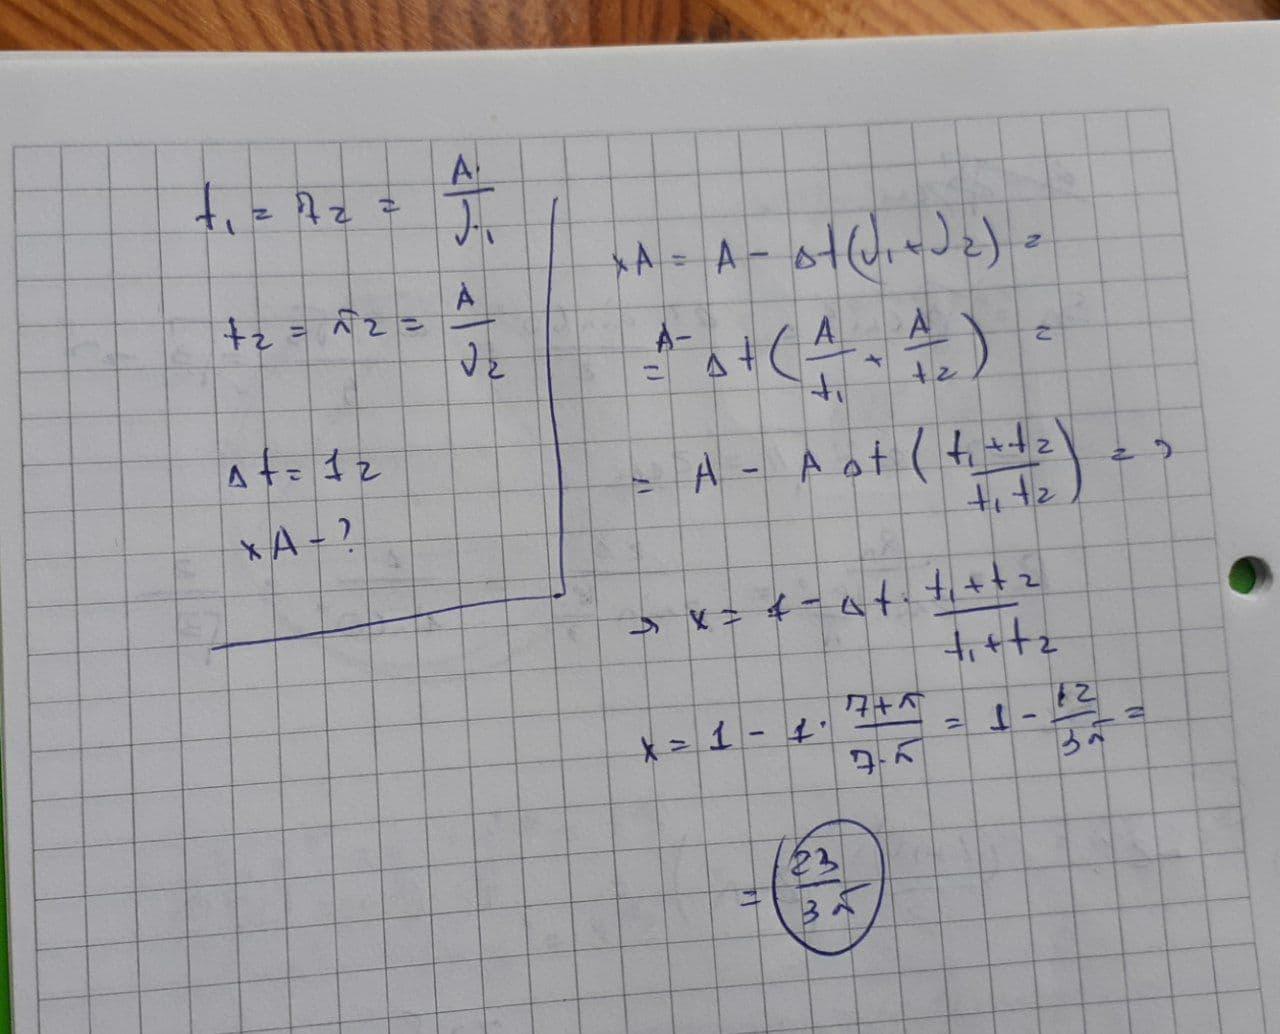 t₁ = 7г = A/V₁
t₂ = 5г = A/V₂
Δt = 1г
xA - ?
xA = A - Δt(V₁+V₂) =
= A - Δt(A/t₁ + A/t₂) =
= A - A Δt((t₁+t₂)/(t₁t₂)) =>
→ x = 1 - Δt · (t₁+t₂)/(t₁+t₂)
x = 1 - 1 · (7+5)/(7·5) = 1 - 12/35 =
= 23/35